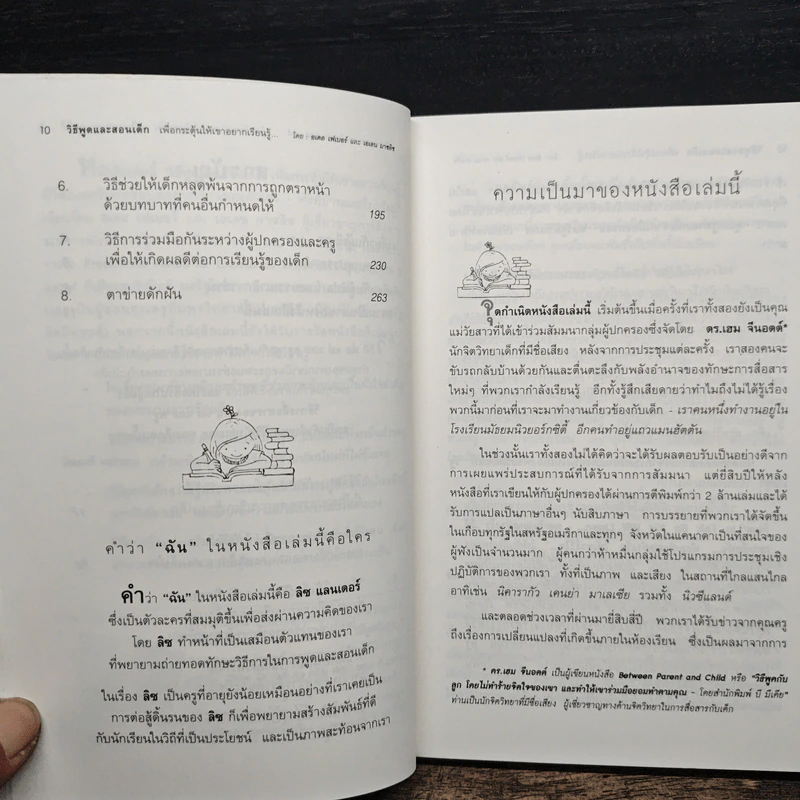 10 วิธีพูดและสอนเด็ก เพื่อกระตุ้นให้เขาอยากเรียนรู้... โดย : อเดล เฟเบอร์ และ เอเลน มาซลิช
6. วิธีช่วยให้เด็กหลุดพ้นจากการถูกตราหน้า
ด้วยบทบาทที่คนอื่นกำหนดให้ 195
7. วิธีการร่วมมือกันระหว่างผู้ปกครองและครู
เพื่อให้เกิดผลดีต่อการเรียนรู้ของเด็ก 230
8. ตาข่ายดักฝัน 263
คำว่า “ฉัน” ในหนังสือเล่มนี้คือใคร
คำว่า “ฉัน” ในหนังสือเล่มนี้คือ ลิซ แลนเดอร์
ซึ่งเป็นตัวละครที่สมมุติขึ้นเพื่อส่งผ่านความคิดของเรา
โดย ลิซ ทำหน้าที่เป็นเสมือนตัวแทนของเรา
ที่พยายามถ่ายทอดทักษะวิธีการในการพูดและสอนเด็ก
ในเรื่อง ลิซ เป็นครูที่อายุยังน้อยเหมือนอย่างที่เราเคยเป็น
การต่อสู้ดิ้นรนของ ลิซ ก็เพื่อพยายามสร้างสัมพันธ์ที่ดี
กับนักเรียนในวิถีที่เป็นประโยชน์ และเป็นภาพสะท้อนจากเรา
ความเป็นมาของหนังสือเล่มนี้
จุดกำเนิดหนังสือเล่มนี้ เริ่มต้นขึ้นเมื่อครั้งที่เราทั้งสองยังเป็นคุณ
แม่วัยสาวที่ได้เข้าร่วมสัมมนากลุ่มผู้ปกครองซึ่งจัดโดย ดร.เฮม จีนอตต์*
นักจิตวิทยาเด็กที่มีชื่อเสียง หลังจากการประชุมแต่ละครั้ง เราสองคนจะ
ขับรถกลับบ้านด้วยกันและตื่นตะลึงกับพลังอำนาจของทักษะการสื่อสาร
ใหม่ๆ ที่พวกเรากำลังเรียนรู้ อีกทั้งรู้สึกเสียดายว่าทำไมถึงไม่ได้รู้เรื่อง
พวกนี้มาก่อนที่เราจะมาทำงานเกี่ยวข้องกับเด็ก - เราคนหนึ่งทำงานอยู่ใน
โรงเรียนมัธยมนิวยอร์กซิตี้ อีกคนทำอยู่แถวแมนฮัตตัน
ในช่วงนั้นเราทั้งสองไม่ได้คิดว่าจะได้รับผลตอบรับเป็นอย่างดีจาก
การเผยแพร่ประสบการณ์ที่ได้รับจากการสัมมนา แต่ยี่สิบปีให้หลัง
หนังสือที่เราเขียนให้กับผู้ปกครองได้ผ่านการตีพิมพ์กว่า 2 ล้านเล่มและได้
รับการแปลเป็นภาษาอื่นๆ นับสิบภาษา การบรรยายที่พวกเราได้จัดขึ้น
ในเกือบทุกรัฐในสหรัฐอเมริกาและทุกๆ จังหวัดในแคนาดาเป็นที่สนใจของ
ผู้ฟังเป็นจำนวนมาก ผู้คนกว่าห้าหมื่นกลุ่มใช้โปรแกรมการประชุมเชิง
ปฏิบัติการของพวกเรา ทั้งที่เป็นภาพ และเสียง ในสถานที่ไกลแสนไกล
อาทิเช่น นิคารากัว เคนย่า มาเลเซีย รวมทั้ง นิวซีแลนด์
และตลอดช่วงเวลาที่ผ่านมายี่สิบสี่ปี พวกเราได้รับข่าวจากคุณครู
ถึงเรื่องการเปลี่ยนแปลงที่เกิดขึ้นภายในห้องเรียน ซึ่งเป็นผลมาจากการ
* ดร.เฮม จีนอตต์ เป็นผู้เขียนหนังสือ Between Parent and Child หรือ “วิธีพูดกับ
ลูก โดยไม่ทำร้ายจิตใจของเขา และทำให้เขาร่วมมือยอมทำตามคุณ - โดยสำนักพิมพ์ บี มีเดีย”
ท่านเป็นนักจิตวิทยาที่มีชื่อเสียง ผู้เชี่ยวชาญทางด้านจิตวิทยาในการสื่อสารกับเด็ก